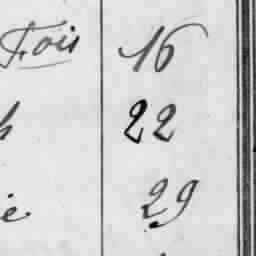 Fois 16
22
29